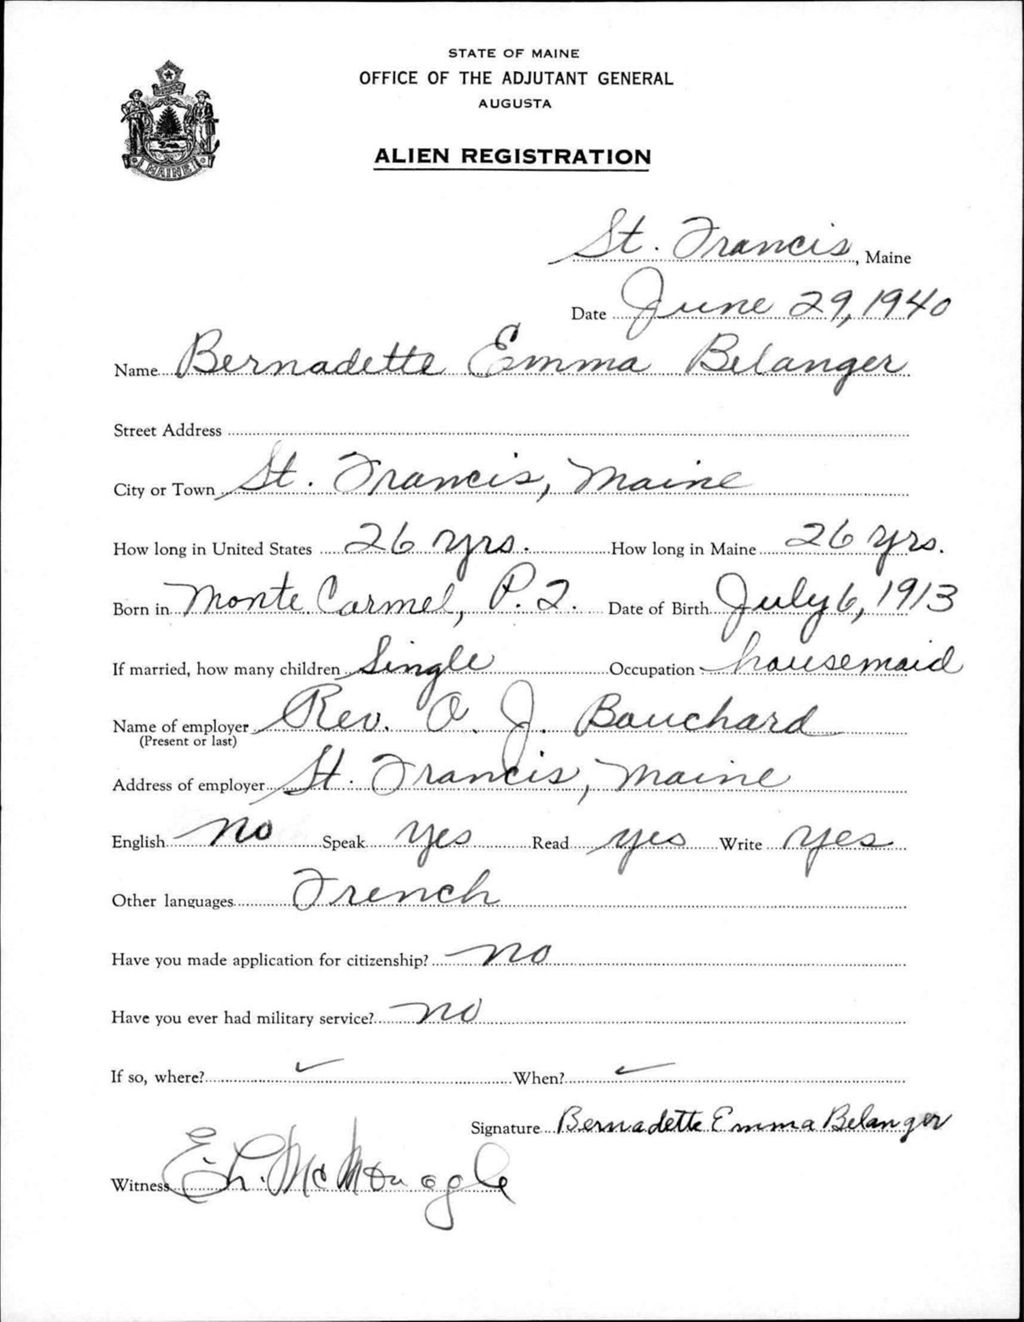 STATE OF MAINE
OFFICE OF THE ADJUTANT GENERAL
AUGUSTA
ALIEN REGISTRATION
MAINE
St. Francis, Maine
Date June 29, 1940
Name Bernadette Emma Belanger
Street Address
City or Town St. Francis, Maine
How long in United States 26 yrs. How long in Maine 26 yrs.
Born in Monte Carmel, P.Q. Date of Birth July 6, 1913
If married, how many children Single Occupation housemaid
Name of employer Rev. O. J. Bouchard
(Present or last)
Address of employer St. Francis, Maine
English No Speak yes Read yes Write yes
Other languages French
Have you made application for citizenship? no
Have you ever had military service? no
If so, where? When?
Signature Bernadette Emma Belanger
Witness E. L. McMonagle